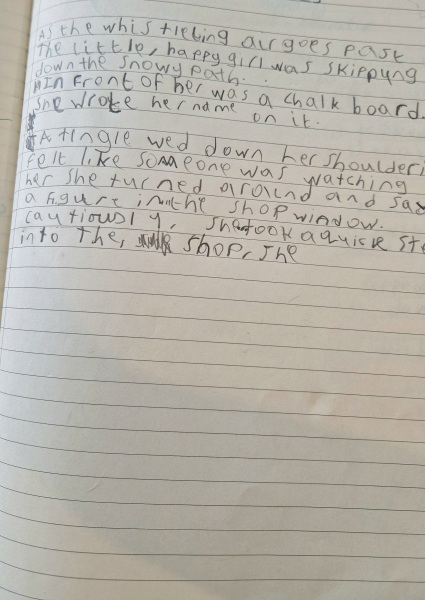 As the whistleting air goes past
the little, happy girl was skippyng
down the snowy path.
In front of her was a chalk board.
She wrote her name
on it.
A tingle wed down her shoulder i
felt like someone was watching
her she turned around and saw
a figure in the shop window.
cautiously, she took a quick ste
into the, shop, she